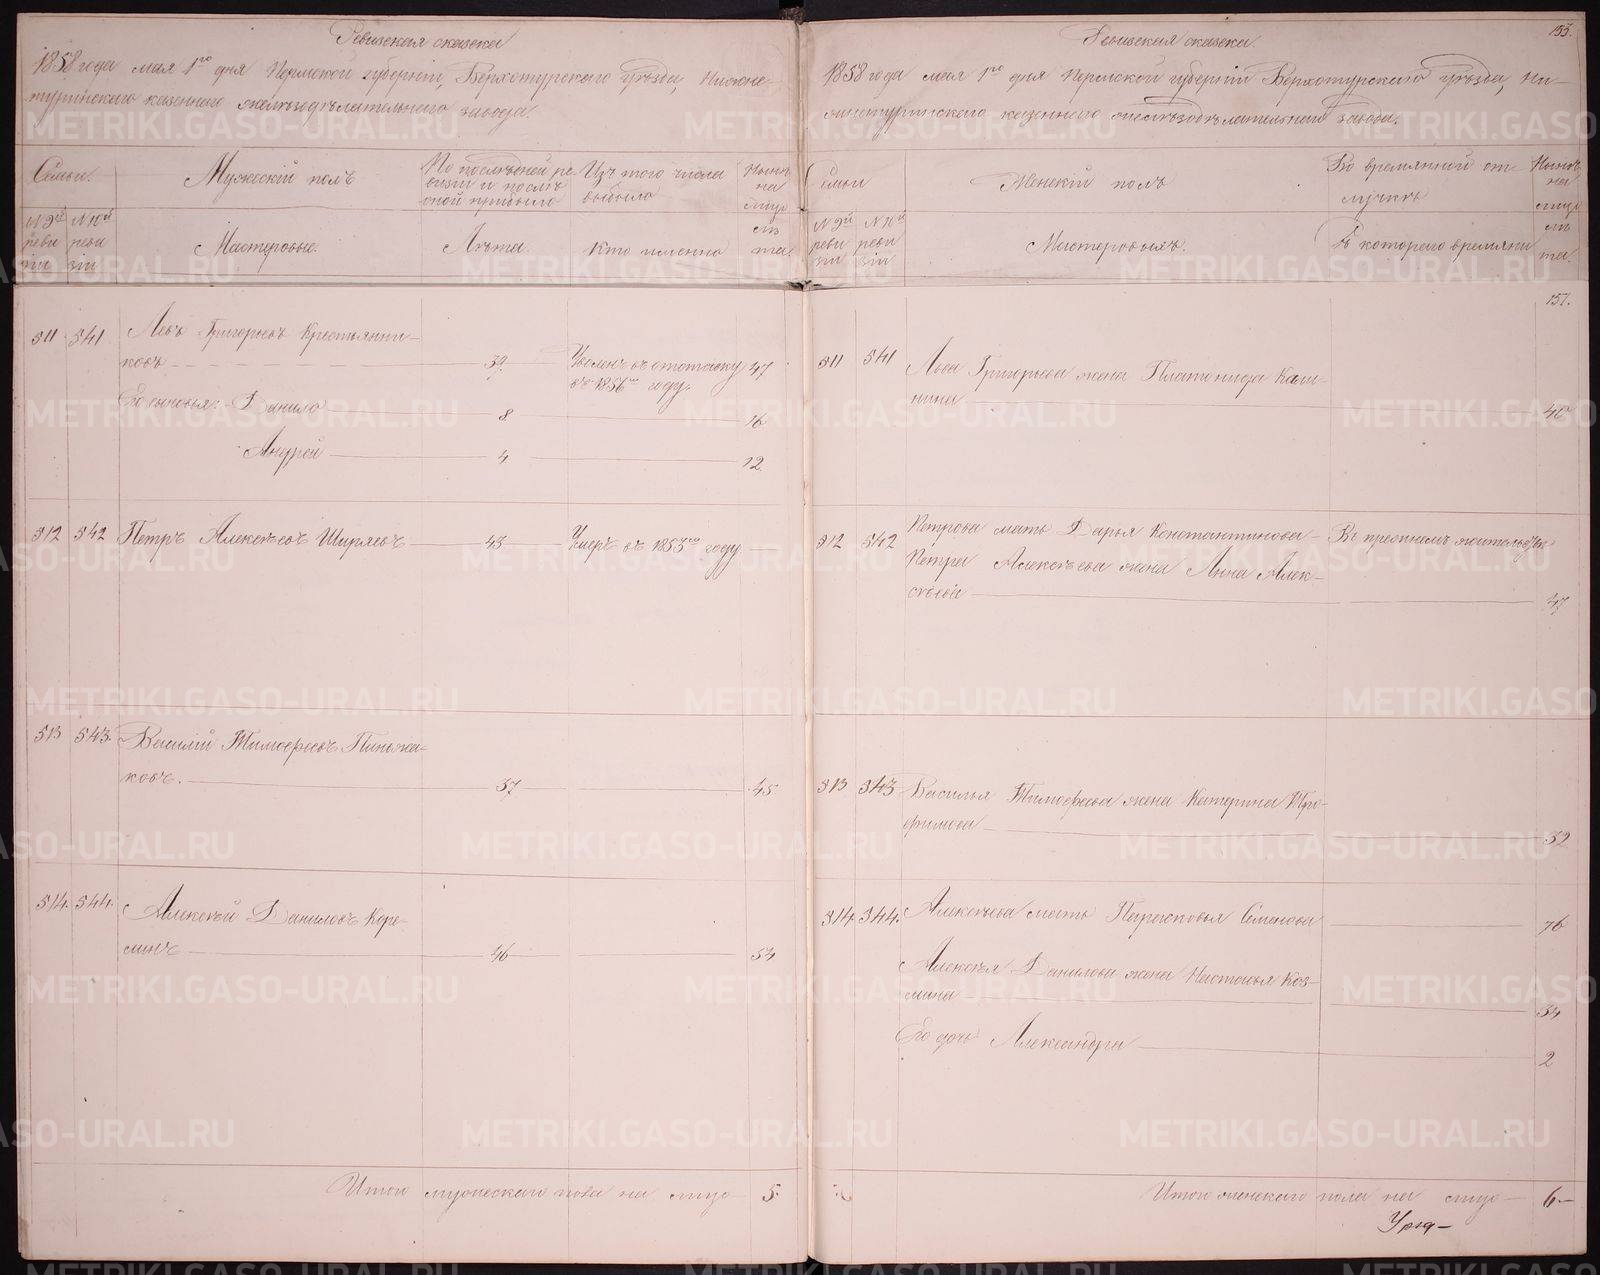 Ревизская сказка
1858 года мая 1го дня Пермской губернии, Верхотурского уѣзда, Нижне-
туринскаго казеннаго желѣзодѣлательнаго завода.
Семьи. Мужескій полъ По послѣдней ре- Изъ того числа Нынѣ
визіи и послѣ выбыло на
оной прибыло лицо
№ 9й № 10й лѣ
реви реви Мастеровые. Лѣта. Кто именно та.
зіи зіи
511 541 Левъ Григорьевъ Крестьянни-
ковъ 39. Уволенъ въ отставку 47
въ 1856мъ году.
Его сыновья: Данило 8 16
Андрей 4 12
512 542 Петръ Алексѣевъ Ширяевъ 43 Умеръ въ 1853мъ году
513 543. Василій Тимофеевъ Пинжа-
ковъ. 37 45
514. 544. Алексѣй Даниловъ Коре-
линъ 46 54
Итого мужескаго пола на лицо 5.
153.
Ревизская сказка.
1858 года мая 1го дня Пермской губерніи Верхотурскаго уѣзда, Ни-
жнетуринскаго казеннаго желѣзодѣлательнаго завода.
Семьи Женскій полъ Во времянной от- Нынѣ
лучкѣ на
лицо
№ 9й № 10й лѣ
реви реви Мастеровыхъ. Съ котораго времяни та.
зіи зіи
151.
511 541 Льва Григорьева жена Платонида Кали-
нина 40
512 542 Петрова мать Дарья Константинова Въ прежнемъ жительствѣ
Петра Алексѣева жена Анна Алек-
сѣева 47
513 543 Василья Тимофеева жена Катерина Тро-
фимова 52
514. 544. Алексѣева мать Парасковья Семенова 76
Алексѣя Данилова жена Настасья Коз-
мина 34
Его дочь Александра 2
Итого женскаго пола на лицо 6
METRIKI.GASO-URAL.RU